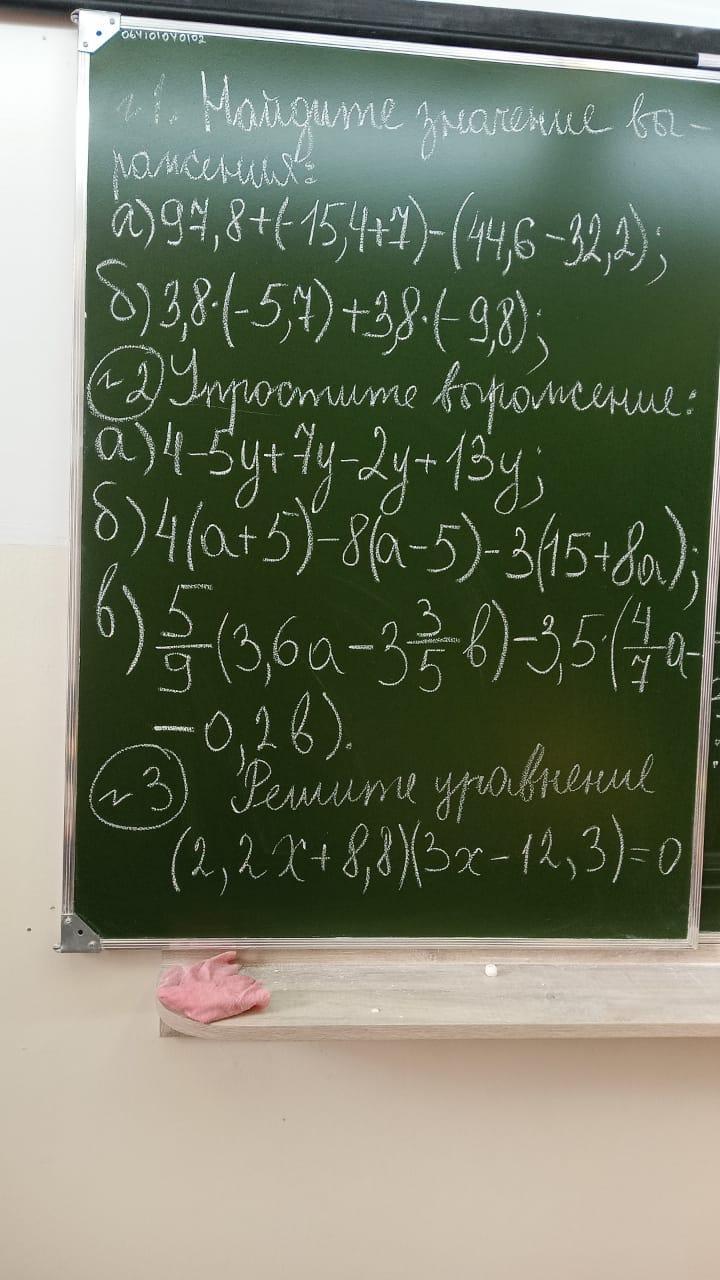 064101040102
№1. Найдите значение вы-
ражения:
а) 97,8+(-15,4+7)-(44,6-32,2);
б) 3,8·(-5,7)+3,8·(-9,8);
№2 Упростите выражение:
а) 4-5y+7y-2y+13y;
б) 4(a+5)-8(a-5)-3(15+8a);
в) 5/9(3,6a-3 3/5 в)-3,5·(4/7 a-
-0,2в).
№3 Решите уравнение
(2,2x+8,8)(3x-12,3)=0